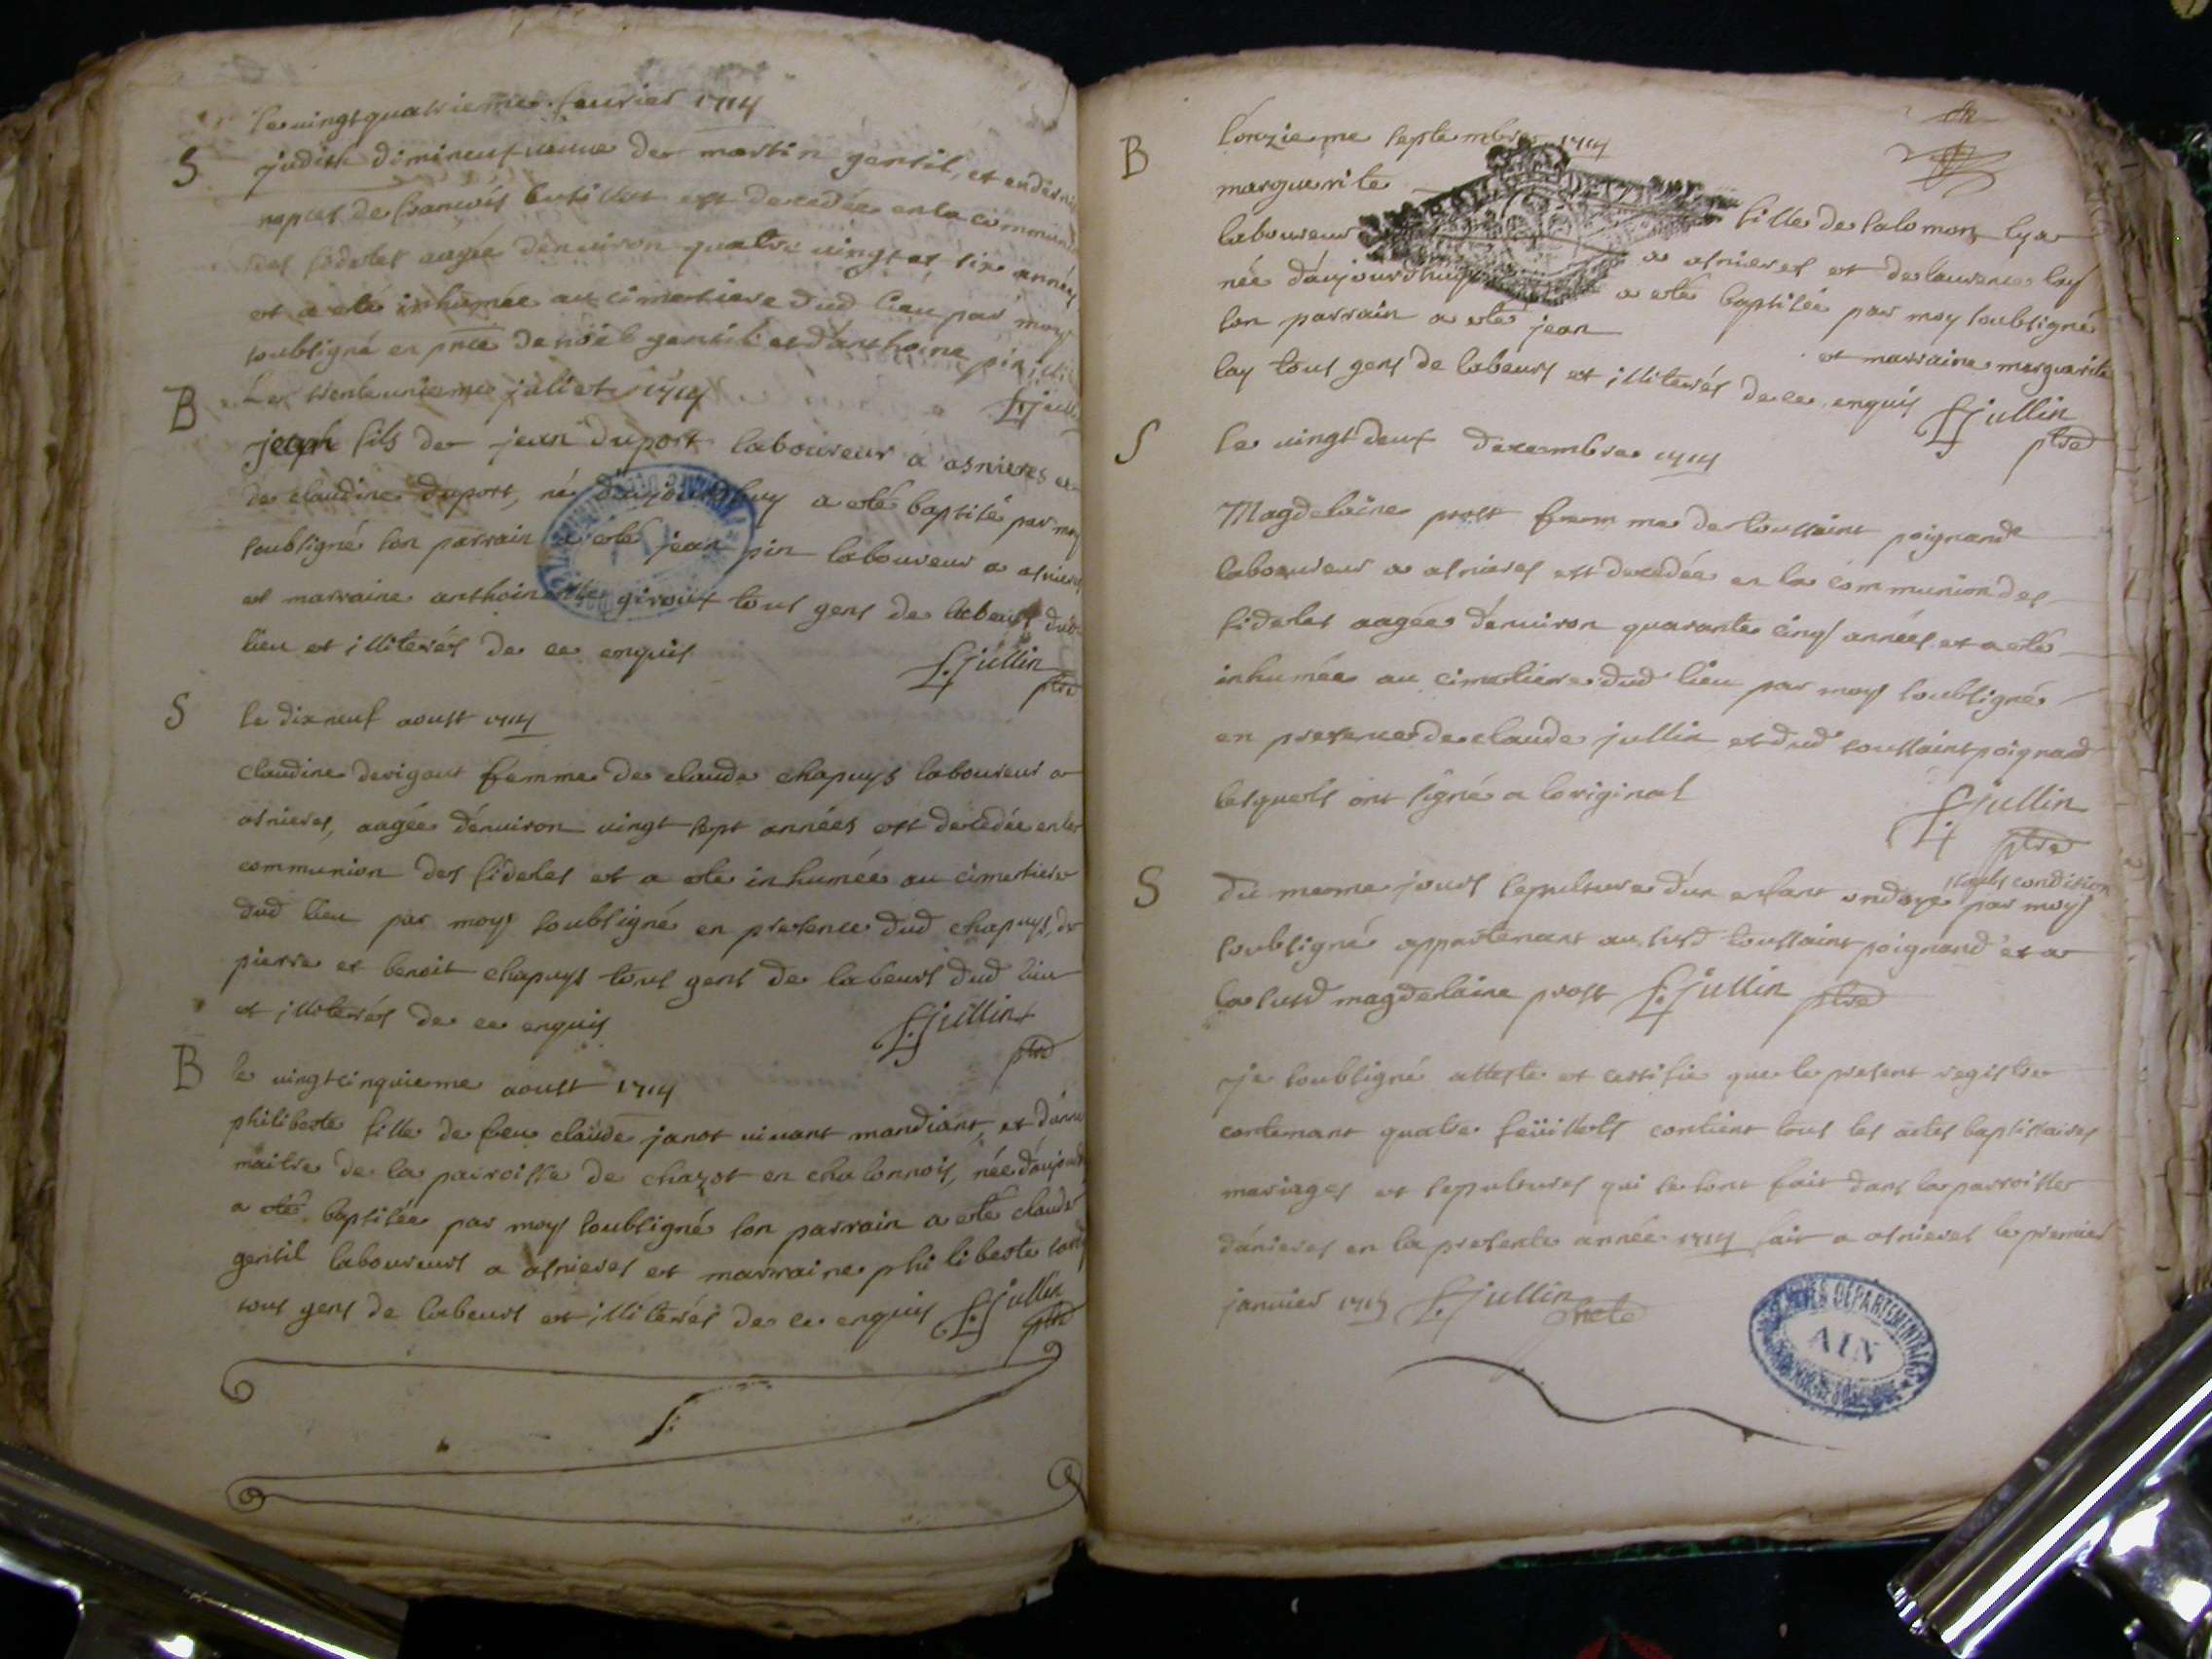 le vingtquatrieme feurier 1714
S judith dimineuf veuue de martin gentil, et en
nopces de francois est decedée en la commun
des fideles aagée denuiron quatre vingt et six années
et a eté inhumée au cimetiere dud lieu par moy
soubsigné en pnce de noël gentil et danthoine
B Le trenteunieme juliet 1714
fjull
joseph fils de jean duport laboureur a asnieres et
de claudine duport, né daujourdhuy a eté baptisé par moy
soubsigné son parrain a eté jean pin laboureur a asnieres
et marraine anthoinette tous gens de labeurs dud
lieu et illiterés de ce enquis
fjullin
ptre
S le dixneuf aoust 1714
claudine derigout femme de claude chapuys laboureur a
asnieres, aagée denuiron vingt sept années est decedée en la
communion des fideles et a ete inhumée au cimetiere
dud lieu par moy soubsigné en presence dud chapuys, de
pierre et benoit chapuys tous gens de labeurs dud lieu
et illiterés de ce enquis
fjullin
ptre
B le vingtcinquieme aoust 1714
philiberte fille de feu claude janot viuant mandiant, et
maitre de la parroisse de chazot en chalonnois, née daujourd
a eté baptisée par moy soubsigné son parrain a eté claude
gentil laboureurs a asnieres et marraine philiberte
tous gens de labeurs et illiterés de ce enquis fjullin
ptre
B lonzieme septembre 1714
marguerite fille de salomon lya
laboureur a asnieres et de laurence lay
née daujourdhuy a eté baptisée par moy soubsigné
son parrain a eté jean et marraine marguerite
lay tous gens de labeurs et illiterés de ce enquis fjullin
ptre
S le vingt deux decembre 1714
Magdelaine prost femme de toussaint poignand
laboureur a asnieres est decedée en la communion des
fideles aagée denuiron quarante cinq années et a eté
inhumée au cimetiere dud lieu par moy soubsigné
en presence de claude jullin et dud toussaint poignand
lesquels ont signé a loriginal
fjullin
ptre
S du mesme jours sepulture dun enfant ondoyé soubs condition par moy
soubsigné appartenant au susd toussaint poignand et a
la susd magdelaine prost fjullin ptre
je soubsigné atteste et certifie que le present registre
contenant quatre feüillets contient tous les actes baptistaires
mariages et sepultures qui se sont fait dans la parroisse
danieres en la presente année 1714 fait a asnieres le premier
januier 1715 fjullin
ptre
ARCHIVES DÉPARTEMENTALES
AIN